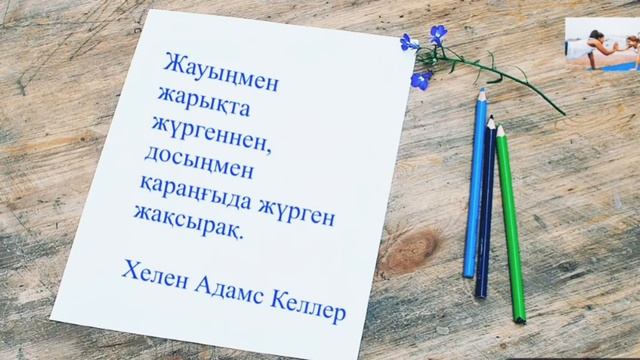 Жауыңмен
жарықта
жүргеннен,
досыңмен
қараңғыда жүрген
жақсырақ.
Хелен Адамс Келлер